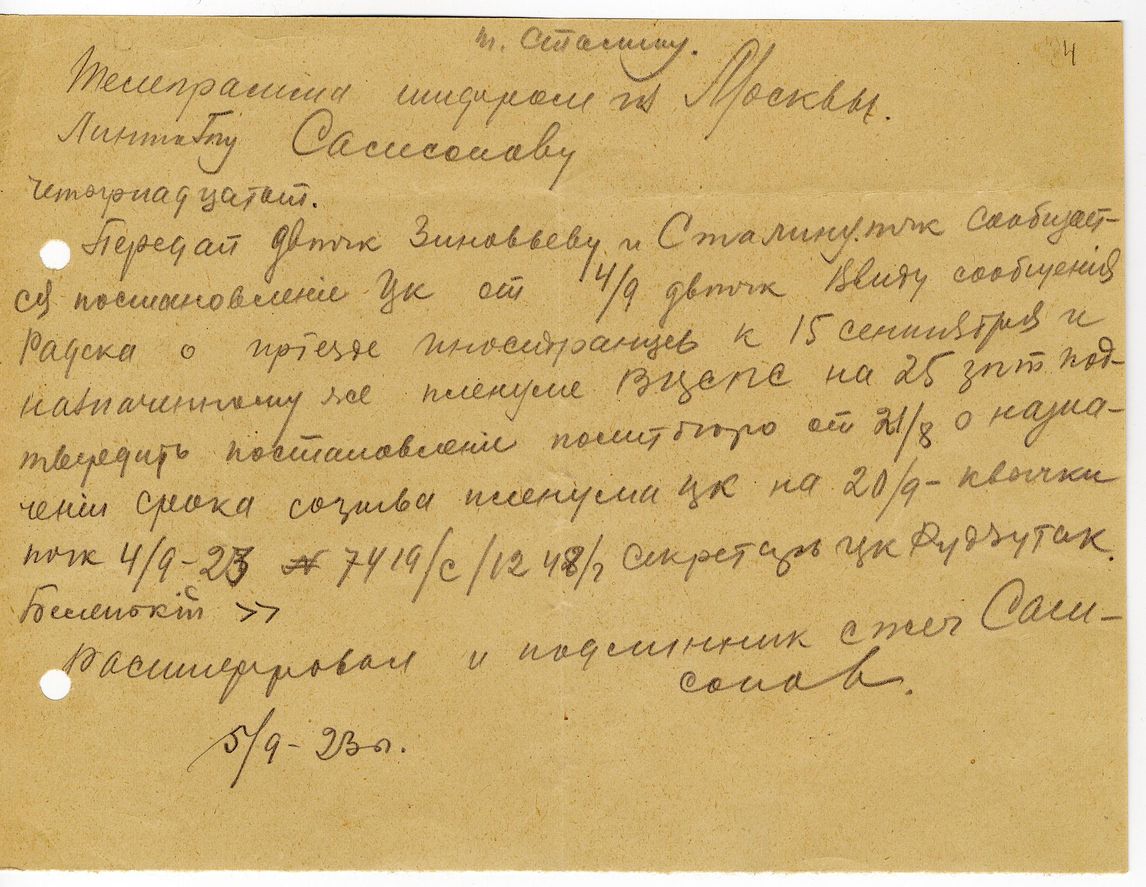 т. Сталину.
4
Телеграмма шифром из Москвы.
Самсонову
четырнадцатая.
Передай двтчк Зиновьеву и Сталину. тчк сообщает-
ся постановление Цк от 4/9 двтчк Ввиду сообщения
Радека о приезде иностранцев к 15 сентября и
назначенному же пленуме ВЦСПС на 25 зпт под-
твердить постановление политбюро от 21/8 о назна-
чении срока созыва пленума цк на 20/9 - кавычки
тчк 4/9-23 № 7419/с/1248/г секретарь цк Рудзутак.
Беленький >>
Расшифровал и подлинник сжег Сам-
сонов.
5/9-23 г.